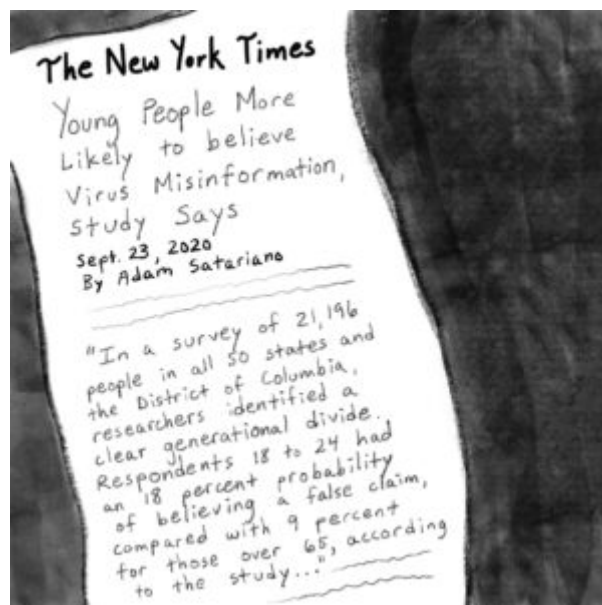 The New York Times
Young People More
Likely to believe
Virus Misinformation,
Study Says
Sept. 23, 2020
By Adam Satariano
"In a survey of 21,196
people in all 50 states and
the District of Columbia,
researchers identified a
clear generational divide.
Respondents 18 to 24 had
an 18 percent probability
of believing a false claim,
compared with 9 percent
for those over 65, according
to the study..."